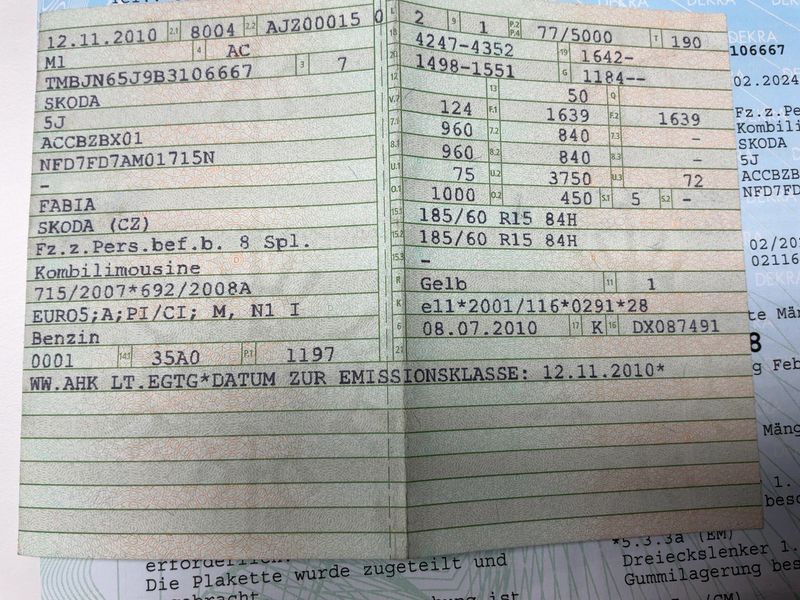 12.11.2010 2.1 8004 2.2 AJZ00015 0
M1 4 AC
TMBJN65J9B3106667 3 7
SKODA
5J
ACCBZBX01
NFD7FD7AM01715N
-
FABIA
SKODA (CZ)
Fz.z.Pers.bef.b. 8 Spl.
Kombilimousine
715/2007*692/2008A
EURO5;A;PI/CI; M, N1 I
Benzin
0001 14.1 35A0 P.1 1197
WW.AHK LT.EGTG*DATUM ZUR EMISSIONSKLASSE: 12.11.2010*
L 2 9 1 P.2 P.4 77/5000 T 190
18 4247-4352 19 1642-
20 1498-1551 G 1184--
12 13 50 Q
V.7 124 F.1 1639 F.2 1639
7.1 960 7.2 840 7.3 -
8.1 960 8.2 840 8.3 -
U.1 75 U.2 3750 U.3 72
O.1 1000 O.2 450 S.1 5 S.2 -
15.1 185/60 R15 84H
15.2 185/60 R15 84H
15.3 -
R Gelb 11 1
K e11*2001/116*0291*28
6 08.07.2010 17 K 16 DX087491
21
DEKRA
106667
02.2024
Fz.z.Pers
Kombilim
SKODA
5J
ACCBZB
NFD7FD
02/20
02116
DEKRA
te Män
8
g Feb
Mäng
1.
besc
erforderlich.
Die Plakette wurde zugeteilt und
gebracht
ist
*5.3.3a (EM)
Dreieckslenker 1.
Gummilagerung bes